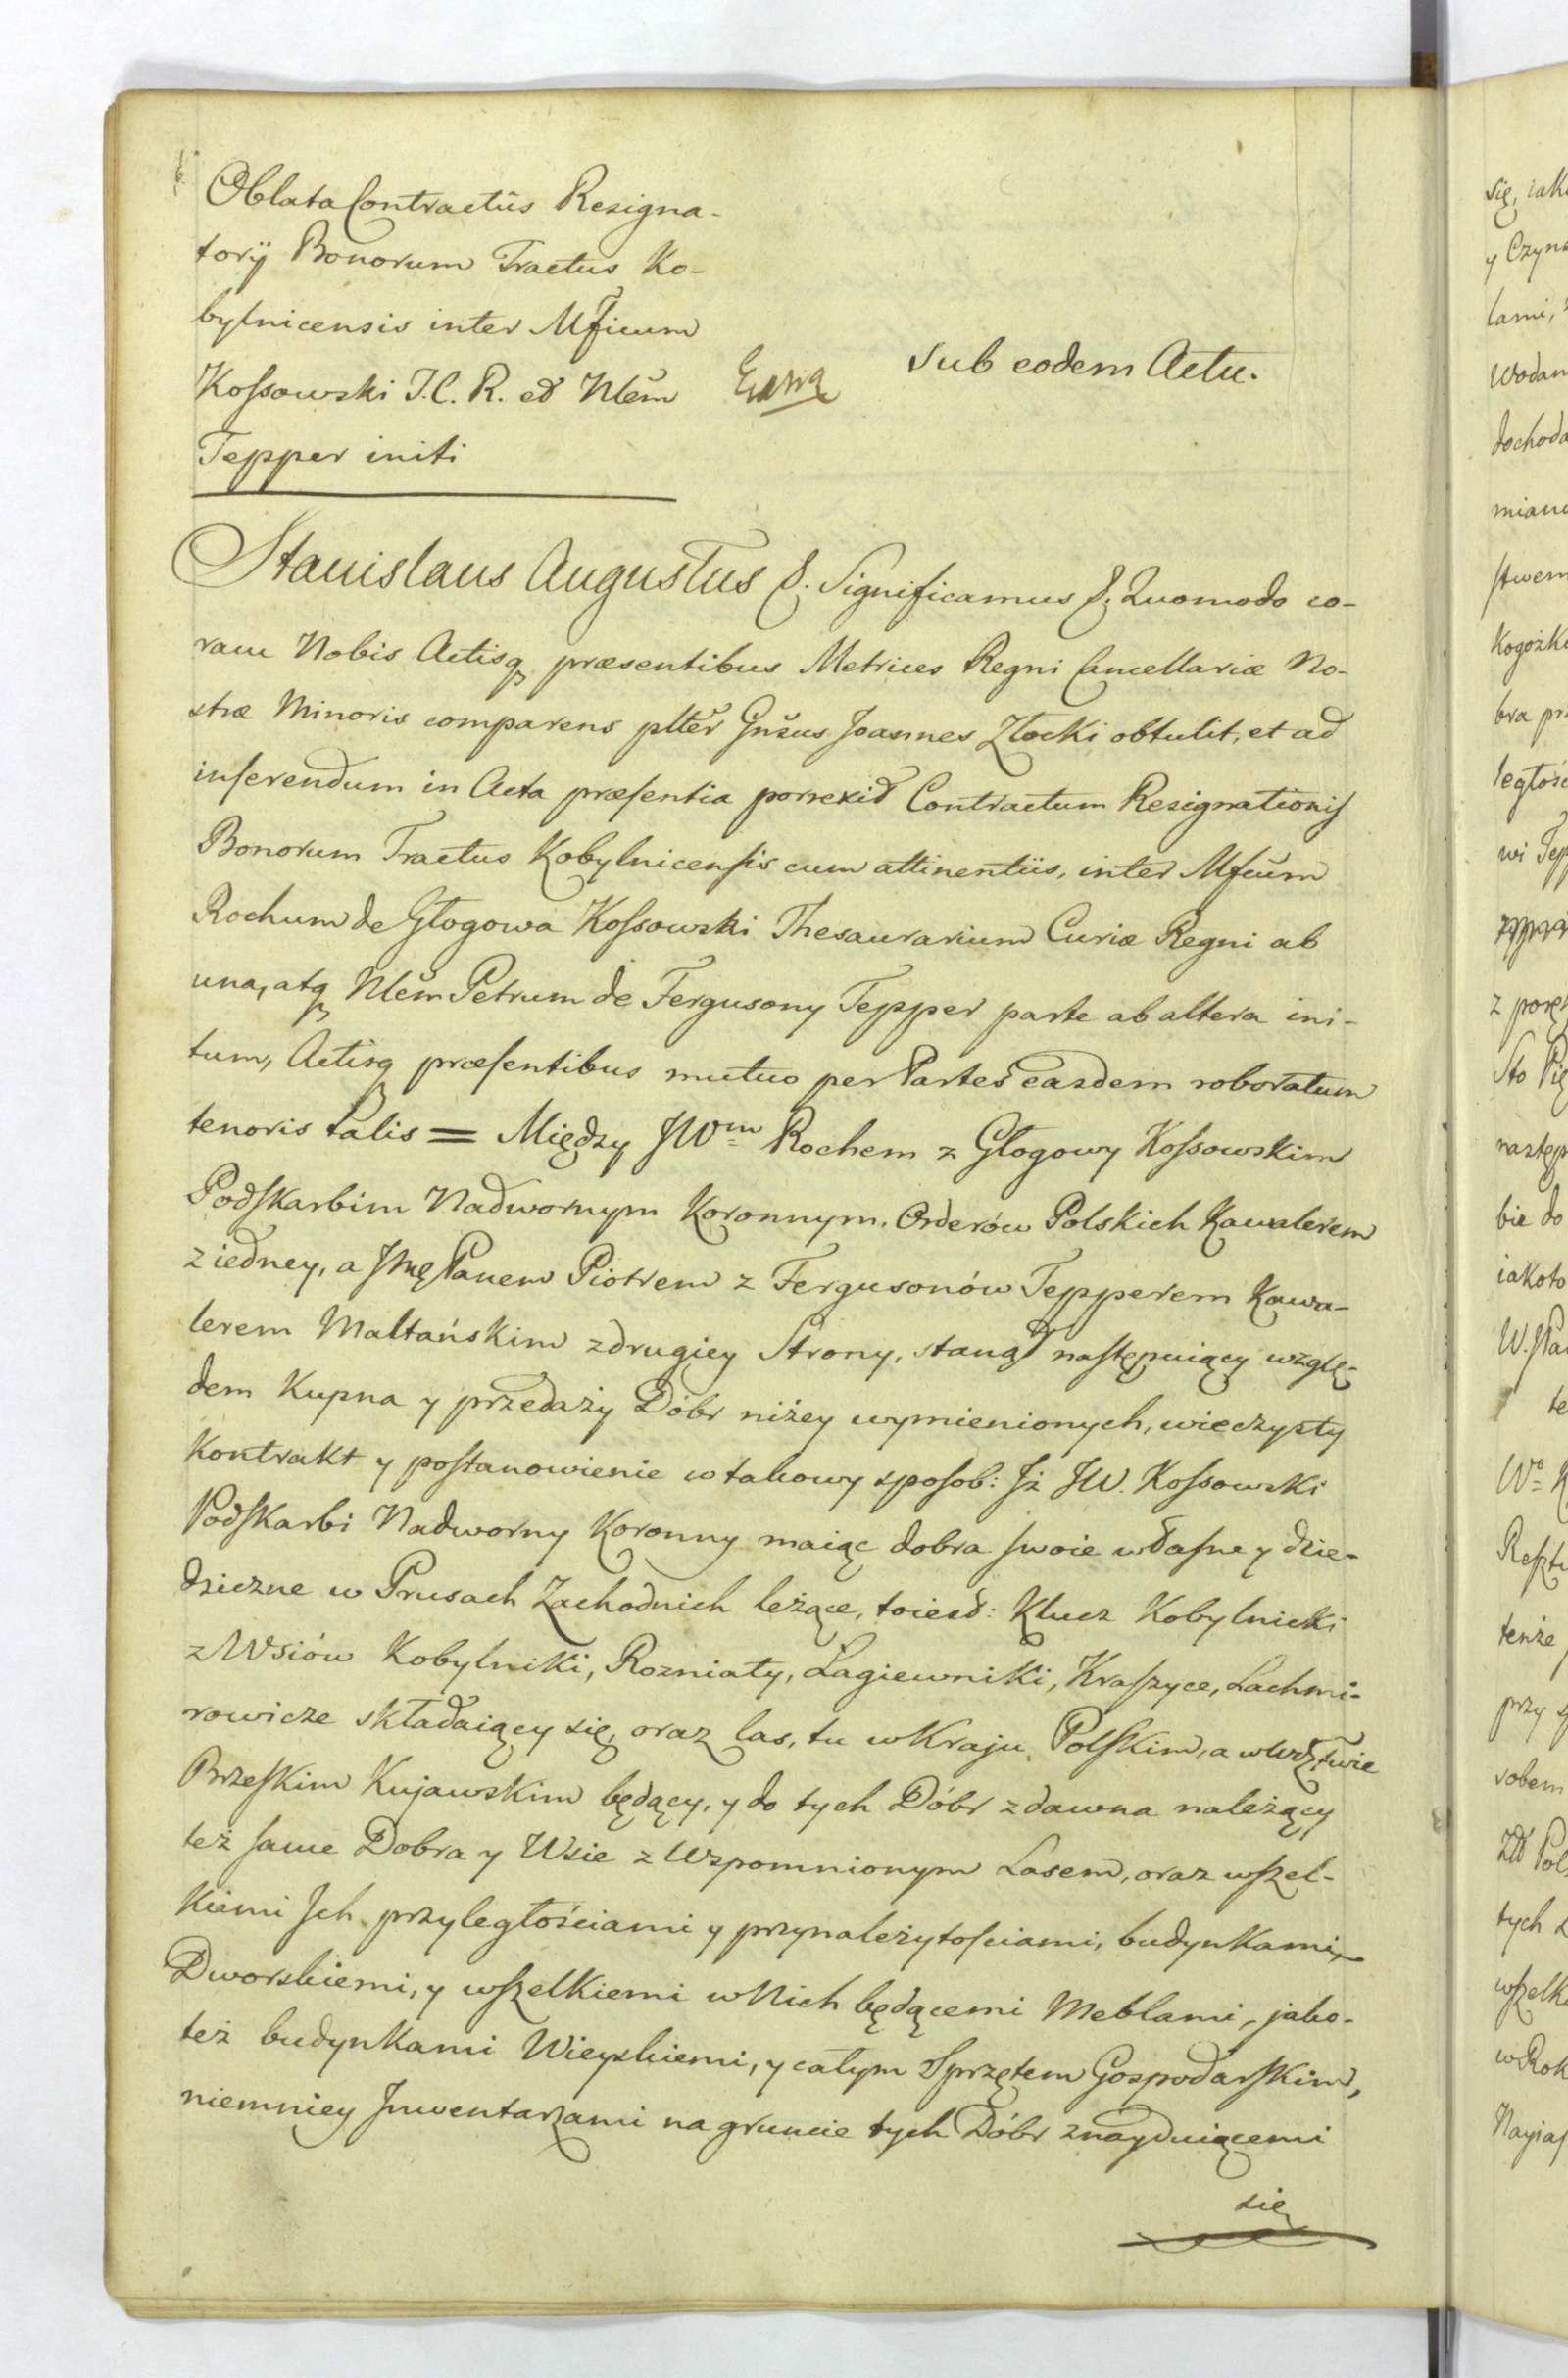 Oblata Contractûs Resigna-
torÿ Bonorum Tractus Ko-
bylnicensis inter Mficum
Kossowski T.C.R. et Nlem
Tepper initi
Sub eodem Actu.
Stanislaus Augustus &. Significamus &. Quomodo co-
ram Nobis Actisq præsentibus Metrices Regni Cancellariæ No-
stræ Minoris comparens pltěr Gnšus Joannes Złocki obtulit, et ad
inserendum in Acta præsentia porrexit Contractum Resignationis
Bonorum Tractus Kobylnicensis cum attinentiis, inter Mfcum
Rochum de Głogowa Kossowski Thesaurarium Curiæ Regni ab
una, atq Nlem Petrum de Fergusony Tepper parte ab altera ini-
tum, Actisq præsentibus mutuo per Partes easdem roboratum
tenoris talis = Między JWm Rochem z Głogowy Kossowskim
Podskarbim Nadwornym Koronnym, Orderów Polskich Kawalerem
z iedney, a Jmę Panem Piotrem z Fergusonów Tepperem Kawa-
lerem Maltańskim z drugiey Strony, stanął następuiący wzglę-
dem Kupna y przedaży Dóbr niżey wymienionych, wieczysty
Kontrakt y postanowienie w takowy sposob: Jż JW. Kossowski
Podskarbi Nadworny Koronny maiąc dobra swoie własne y dzie-
dziczne w Prusach Zachodnich leżące, toiest: Klucz Kobylnicki
z Wsiów Kobylniki, Rozniaty, Łagiewniki, Kraszyce, Lachmi-
rowicze składaiący się, oraz las, tu w Kraju Polskim, a w Wdztwie
Brzeskim Kujawskim będący, y do tych Dóbr zdawna należący
też same Dobra y Wsie z Wspomnionym Lasem, oraz wszel-
kiemi Jch przyległościami y przynależytościami, budynkami
Dworskiemi, y wszelkiemi w Nich będącemi Meblami, jako-
też budynkami Wieyskiemi, y całym Sprzętem Gospodarskim,
niemniey Jnwentarzami na gruncie tych Dóbr znayduiącemi
się